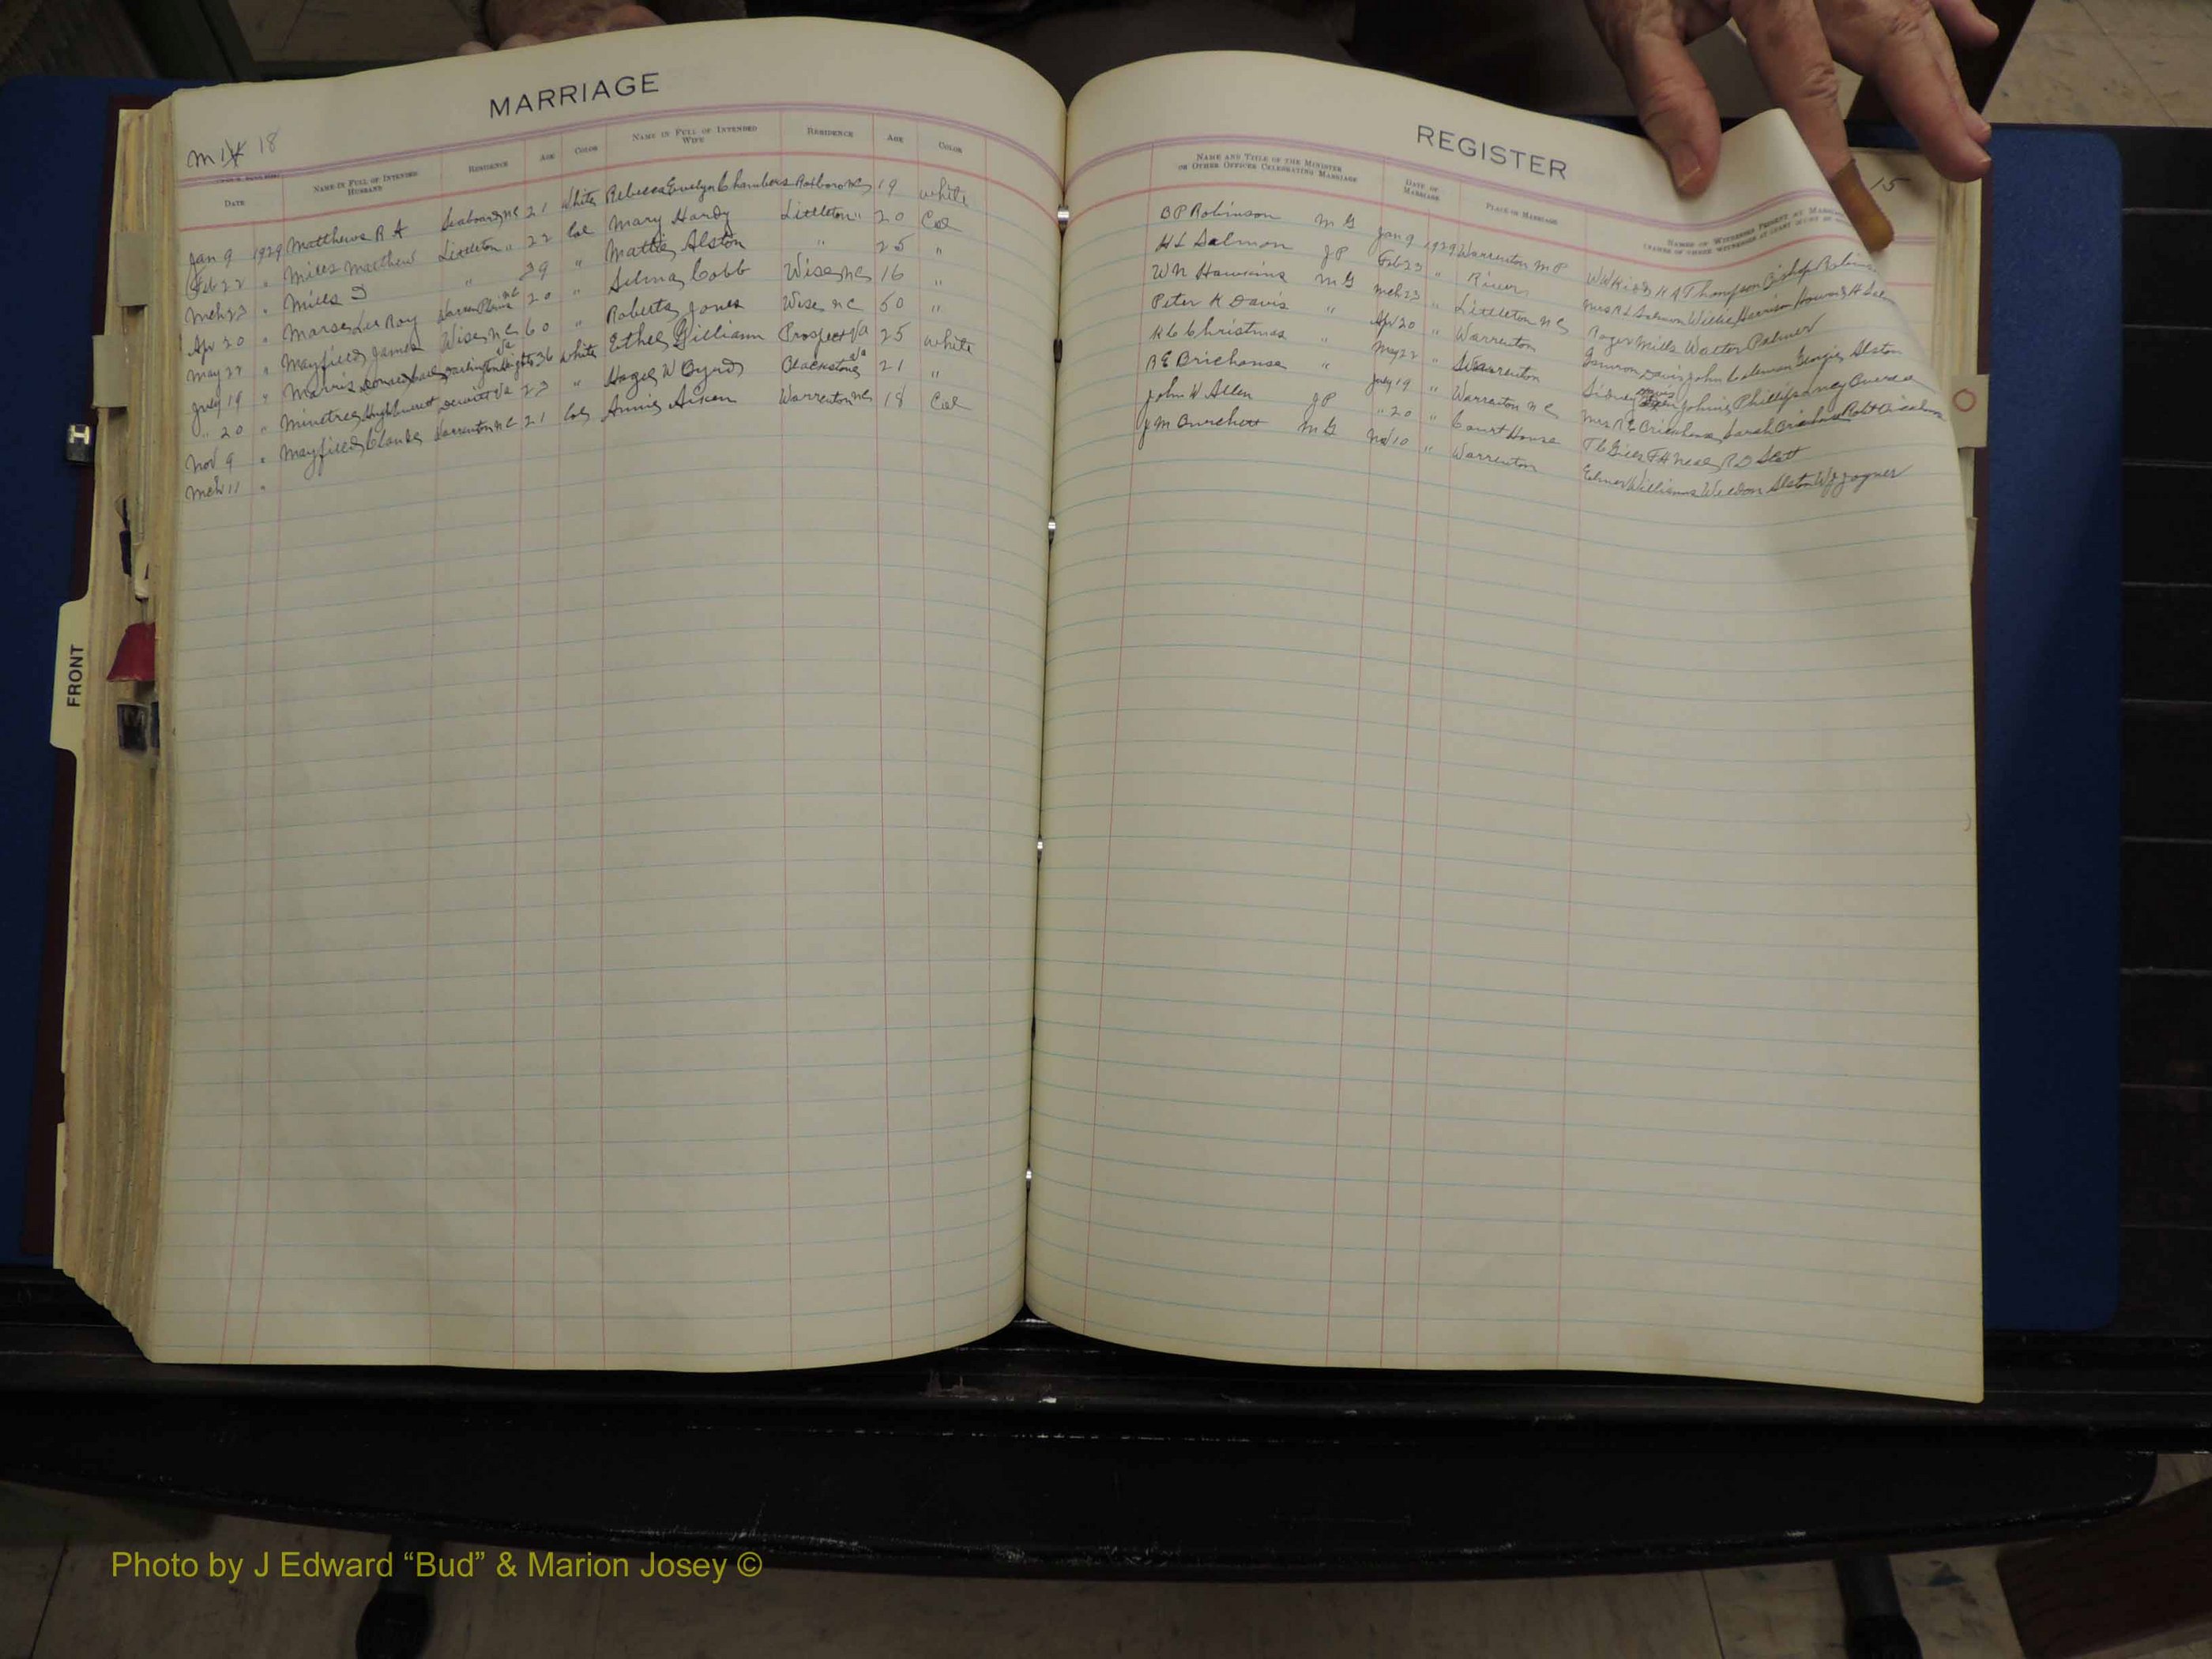 MARRIAGE
18
DATE NAME IN FULL OF INTENDED HUSBAND RESIDENCE AGE COLOR NAME IN FULL OF INTENDED WIFE RESIDENCE AGE COLOR
Jan 9 1929 Matthews R A Seaboard NC 21 White Rebecca Evelyn Chambers Roxboro NC 19 white
Feb 22 " Mills Matthew Littleton " 22 Col Mary Hardy Littleton " 20 Col
Mch 23 " Mills " 39 " Mattie Alston " 25 "
Apr 20 " Lee Roy Warren Plains NC 20 " Selma Cobb Wise NC 16 "
May 22 " Mayfield James Wise NC 60 " Roberta Jones Wise NC 50 "
July 19 " Morris 36 white Ethel Gilliam Prospect Va 25 white
" 20 " Hugh Va 23 " Hazel W Byrd Blackstone Va 21 "
Nov 9 " Mayfield Claude Warrenton NC 21 Col Annie Aiken Warrenton NC 18 Col
Mch 11 "
REGISTER
15
NAME AND TITLE OF THE MINISTER OR OTHER OFFICER CELEBRATING MARRIAGE DATE OF MARRIAGE PLACE OF MARRIAGE NAMES OF WITNESSES PRESENT AT
B P Robinson M G Jan 9 1929 Warrenton M P Thompson Bishop
H L Salmon J P Feb 23 " River Mrs Salmon Willie Harrison
W N Hawkins M G Mch 23 " Littleton NC Roger Mills Walter Palmer
Peter K Davis " Apr 20 " Warrenton Davis John Coleman Georgia Alston
K C Christmas " May 22 " Warrenton Sidney Phillips
R E Brickhouse " July 19 " Warrenton NC Mrs R E Brickhouse Sarah Brickhouse
John W Allen J P " 20 " Court House Neal R D Scott
J M Burchett M G Nov 10 " Warrenton Elmer Williams Weldon Alston
FRONT
M
H
Photo by J Edward “Bud” & Marion Josey ©